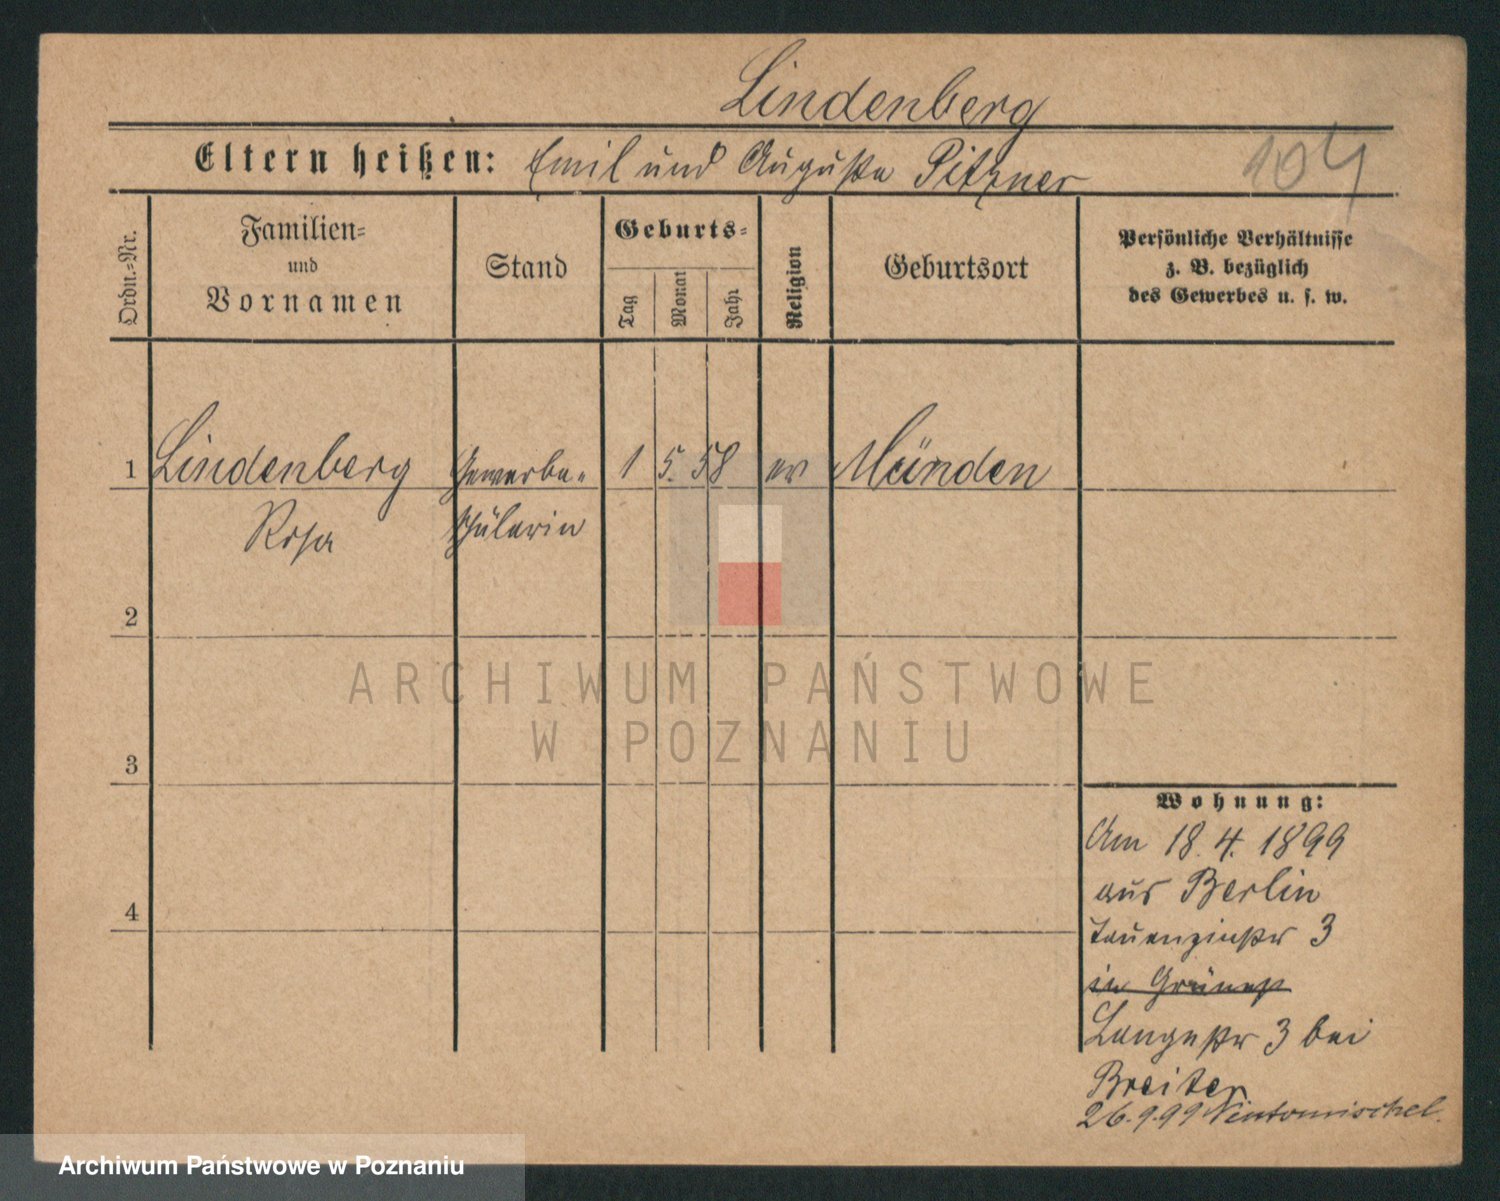 Lindenberg
Eltern heißen: Emil und Auguste Pitzner
104
Ordn.-Nr.
Familien-
und
Vornamen
Stand
Geburts-
Tag
Monat
Jahr
Religion
Geburtsort
Persönliche Verhältnisse
z. B. bezüglich
des Gewerbes u. s. w.
1 Lindenberg Gewerbe- 1 5. 58 ev Münden
Rosa schülerin
2
ARCHIWUM PAŃSTWOWE
W POZNANIU
3
Wohnung:
Am 18. 4. 1899
aus Berlin
4
Tauenzinstr 3
in
Langestr 3 bei
Breiter
26.9.99 Neutomischel.
Archiwum Państwowe w Poznaniu